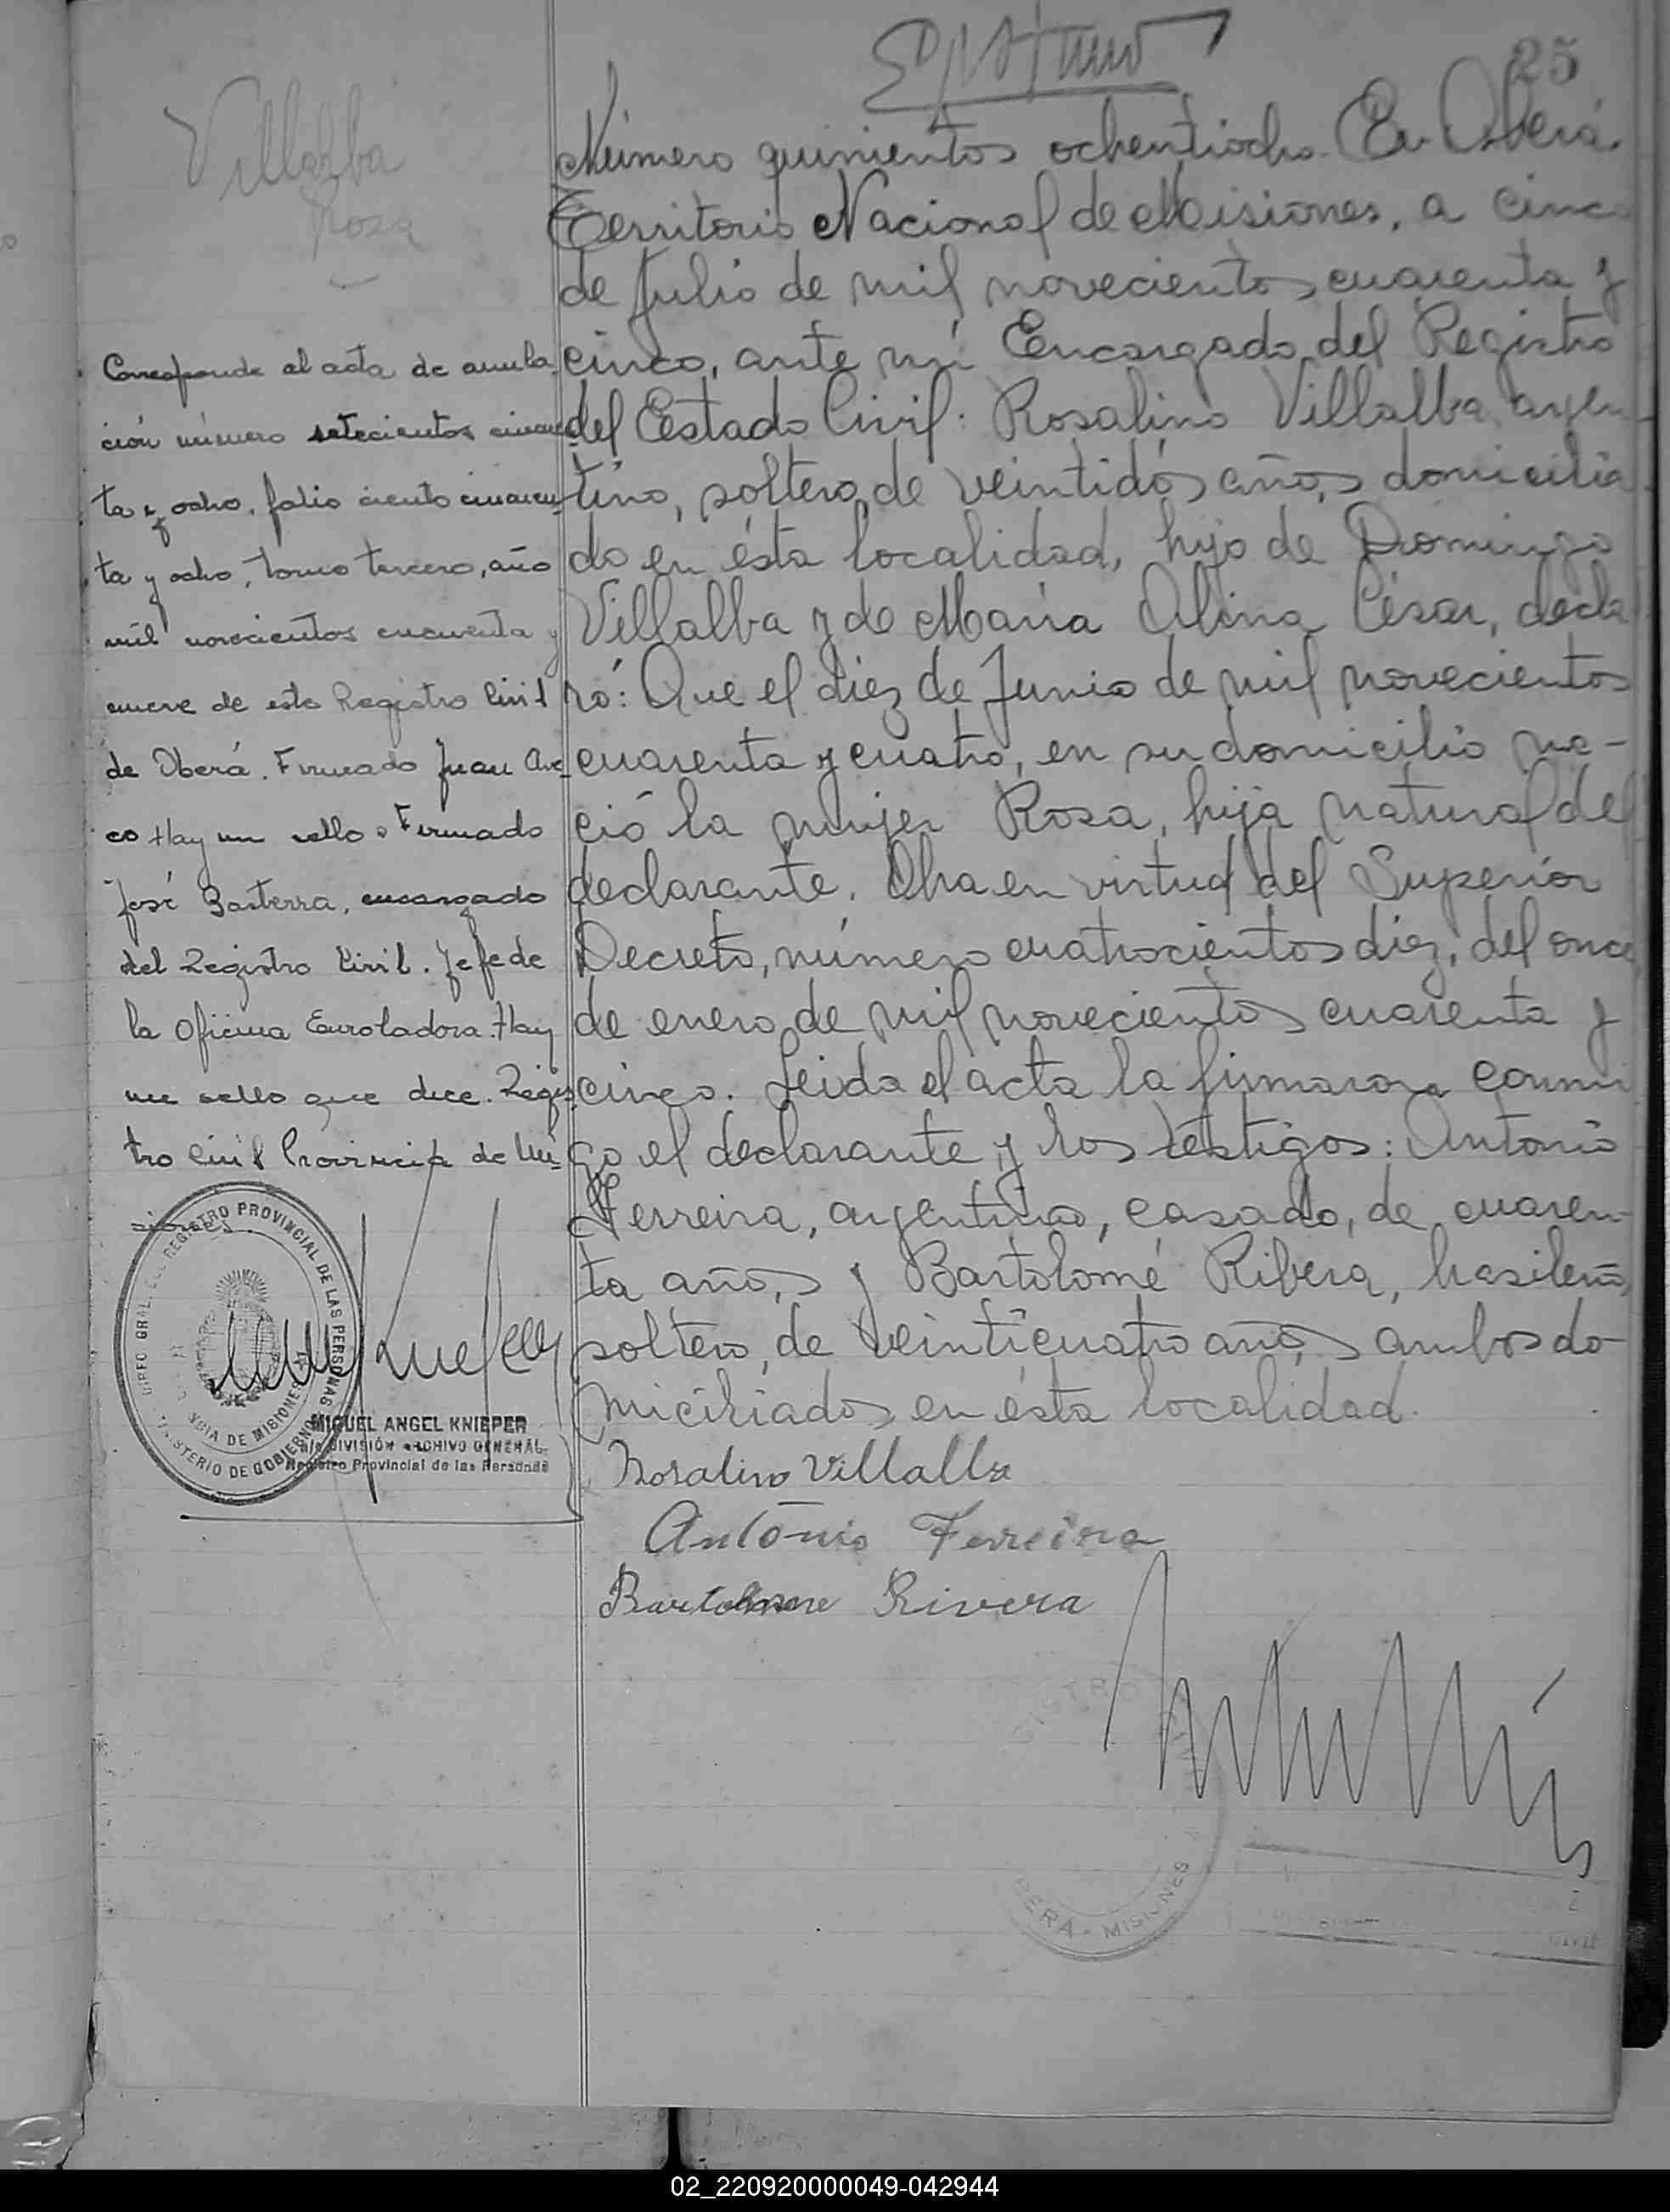 25
Villalba
Rosa
Número quinientos ochentiocho. En Oberá,
Territorio Nacional de Misiones, a cinco
de Julio de mil novecientos cuarenta y
cinco, ante mí Encargado del Registro
del Estado Civil: Rosalino Villalba, argen
tino, soltero, de veintidós años, domicilia
do en ésta localidad, hijo de Domingo
Villalba y de María Albina César, decla
ró: Que el diez de Junio de mil novecientos
cuarenta y cuatro, en su domicilio na-
ció la mujer Rosa, hija natural del
declarante. Obra en virtud del Superior
Decreto, número cuatrocientos diez, del once
de enero de mil novecientos cuarenta y
cinco. Leida el acta la firmaron conmi
go el declarante y los testigos: Antonio
Ferreira, argentino, casado, de cuaren-
ta años, y Bartolomé Ribera, brasileño,
soltero, de veinticuatro años, ambos do-
miciliados en ésta localidad.
Rosalino Villalba
Antônio Ferreira
Bartolome Rivera
Corresponde al acta de anula-
ción número setecientos cincuen-
ta y ocho, folio ciento cincuen-
ta y ocho, tomo tercero, año
mil novecientos cincuenta y
nueve de este Registro Civil
de Oberá. Firmado Juan
co Hay un sello. Firmado
José Basterra, encargado
del Registro Civil. Jefe de
la Oficina Enroladora. Hay
un sello que dice. Regis-
tro Civil Provincia de Mi-
siones.
REGISTRO PROVINCIAL DE LAS PERSONAS
MINISTERIO DE GOBIERNO
PROVINCIA DE MISIONES
MIGUEL ANGEL KNIEPER
a/c DIVISIÓN ARCHIVO GENERAL
Registro Provincial de las Personas
REGISTRO CIVIL
OBERÁ - MISIONES
02_220920000049-042944